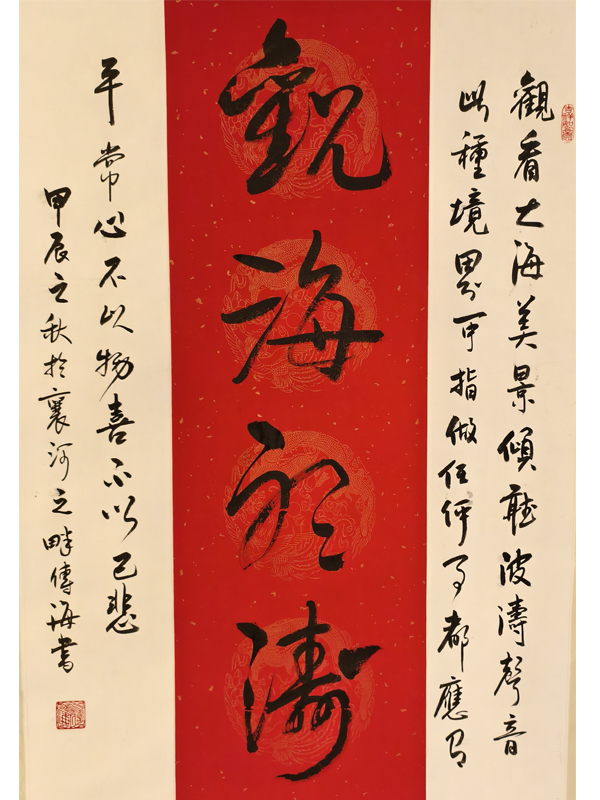 觀看大海美景傾聽波濤聲音
此種境界可指做任何事都應有
觀海聽濤
平常心不以物喜不以己悲
甲辰之秋於襄河之畔傳海書